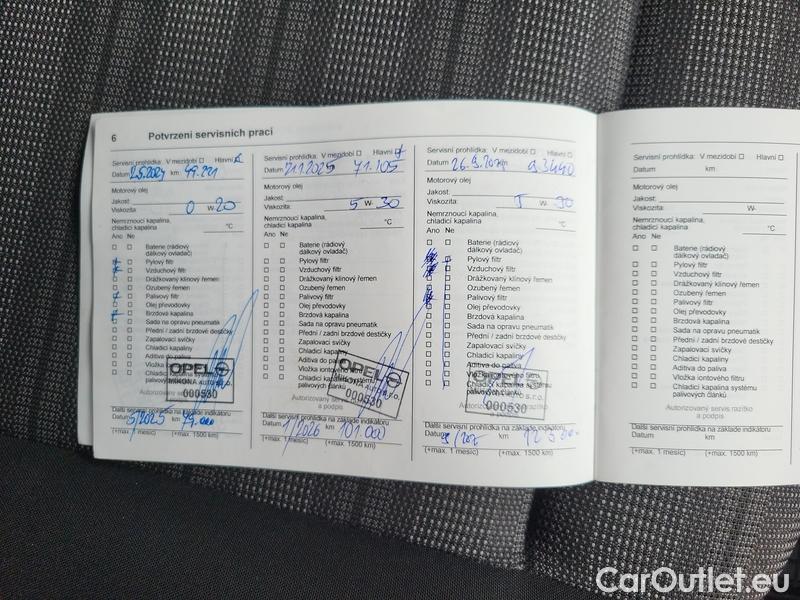 6 Potvrzení servisních prací
Servisní prohlídka: V mezidobí Hlavní
Datum 2.5.2024 km 49.221
Motorový olej
Jakost:
Viskozita: 0 W- 20
Nemrznoucí kapalina,
chladicí kapalina °C
Ano Ne
Baterie (rádiový
dálkový ovladač)
Pylový filtr
Vzduchový filtr
Drážkovaný klínový řemen
Ozubený řemen
Palivový filtr
Olej převodovky
Brzdová kapalina
Sada na opravu pneumatik
Přední / zadní brzdové destičky
Zapalovací svíčky
Chladicí kapaliny
Aditiva do
palivových
OPEL
000530
Autorizovaný
Další servisní prohlídka na základě indikátoru
Datum 5/2025 km 79.000
(+max. 1 měsíc) (+max. 1500 km)
Servisní prohlídka: V mezidobí Hlavní
Datum 7.1.2025 71.105
Motorový olej
Jakost:
Viskozita: 5 W- 30
Nemrznoucí kapalina,
chladicí kapalina °C
Ano Ne
Baterie (rádiový
dálkový ovladač)
Pylový filtr
Vzduchový filtr
Drážkovaný klínový řemen
Ozubený řemen
Palivový filtr
Olej převodovky
Brzdová kapalina
Sada na opravu pneumatik
Přední / zadní brzdové destičky
Zapalovací svíčky
Chladicí kapaliny
Aditiva do
Vložka
palivových článků
OPEL
000530
Autorizovaný servis
a podpis
Další servisní prohlídka na základě indikátoru
Datum 1/2026 km 101.000
(+max. 1 měsíc) (+max. 1500 km)
Servisní prohlídka: V mezidobí Hlavní
Datum 26.9. 93440
Motorový olej
Jakost:
Viskozita: 5 W- 30
Nemrznoucí kapalina,
chladicí kapalina °C
Ano Ne
Baterie (rádiový
dálkový ovladač)
Pylový filtr
Vzduchový filtr
Drážkovaný klínový řemen
Ozubený řemen
Palivový filtr
Olej převodovky
Brzdová kapalina
Sada na opravu pneumatik
Přední / zadní brzdové destičky
Zapalovací svíčky
Chladicí kapaliny
Aditiva do paliva
Vložka iontového filtru
Chladicí kapalina systému
palivových článků
s.r.o.
000530
Autorizovaný servis
Další servisní prohlídka na základě indikátoru
Datum km
(+max. 1 měsíc) (+max. 1500 km)
Servisní prohlídka: V mezidobí Hlavní
Datum km
Motorový olej
Jakost:
Viskozita: W-
Nemrznoucí kapalina,
chladicí kapalina °C
Ano Ne
Baterie (rádiový
dálkový ovladač)
Pylový filtr
Vzduchový filtr
Drážkovaný klínový řemen
Ozubený řemen
Palivový filtr
Olej převodovky
Brzdová kapalina
Sada na opravu pneumatik
Přední / zadní brzdové destičky
Zapalovací svíčky
Chladicí kapaliny
Aditiva do paliva
Vložka iontového filtru
Chladicí kapalina systému
palivových článků
Autorizovaný servis razítko
a podpis
Další servisní prohlídka na základě indikátoru
Datum km
(+max. 1 měsíc) (+max. 1500 km)
CarOutlet.eu